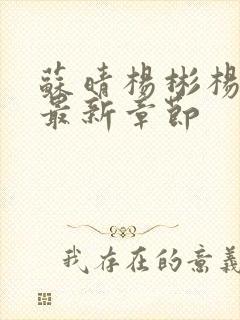 蘇晴楊彬楊
最新章節
我存在的意義